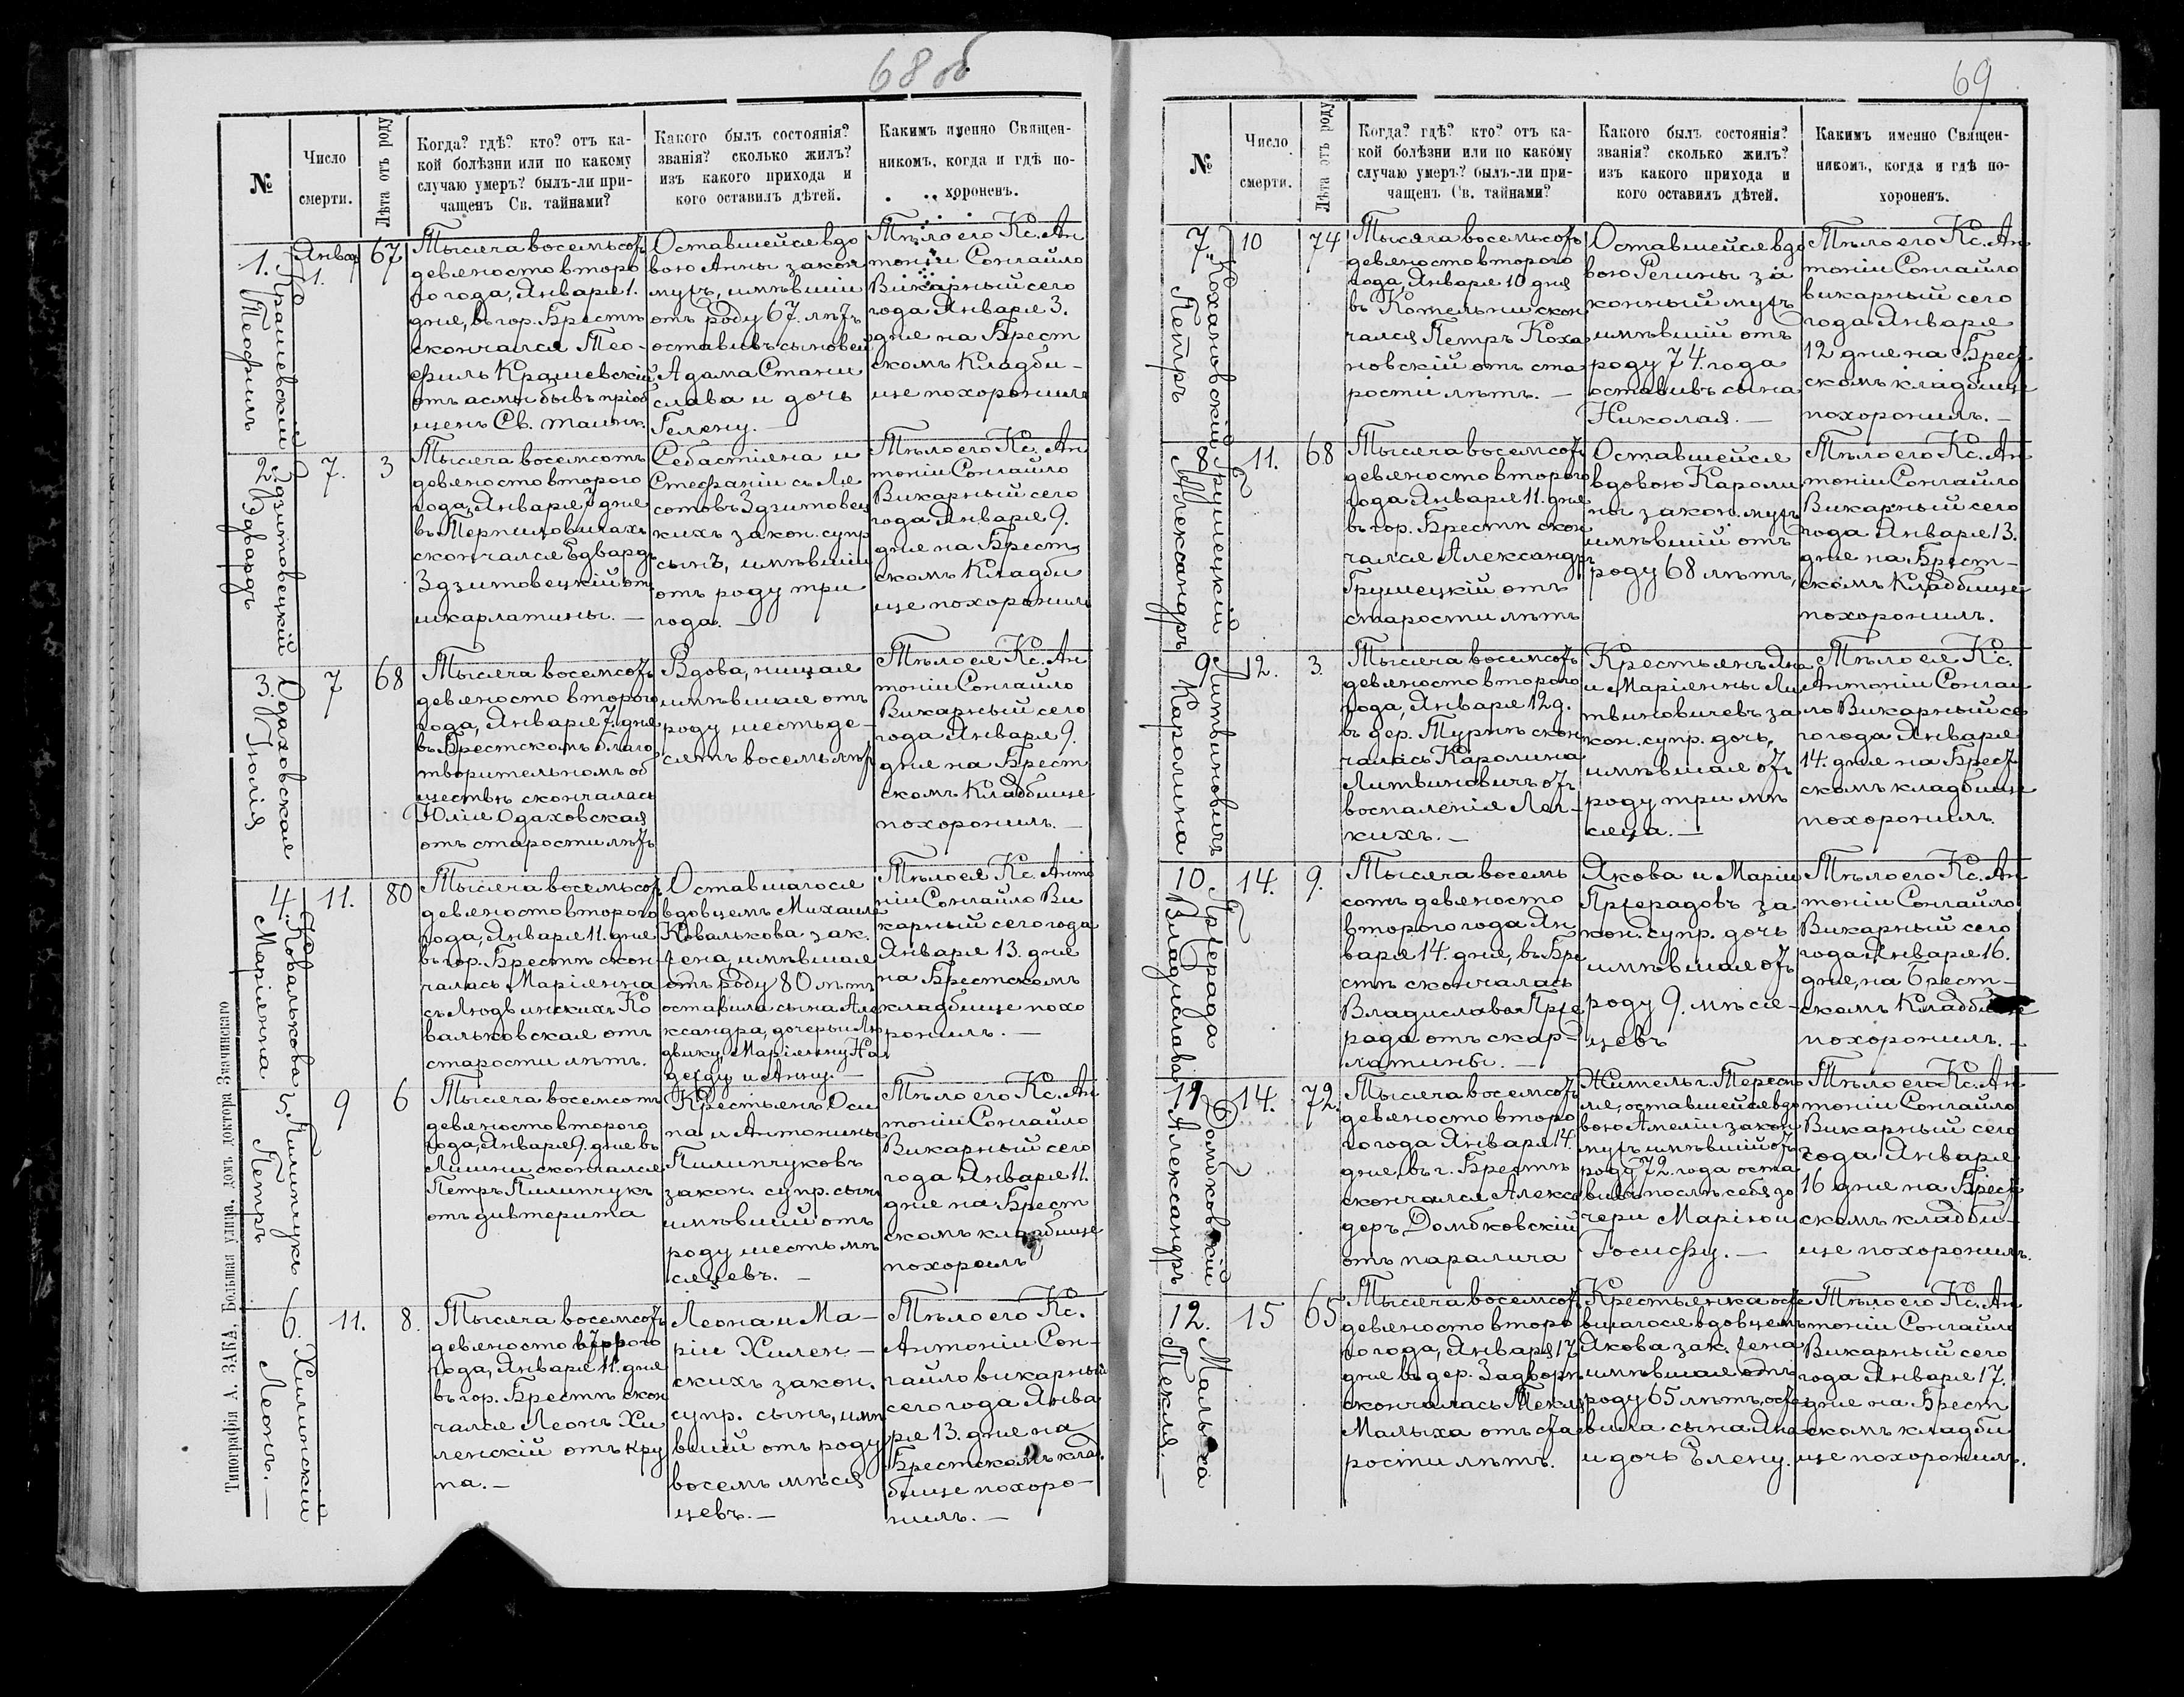 68 об
№
Число
смерти.
Лѣта отъ роду
Когда? гдѣ? кто? отъ ка-
кой болѣзни или по какому
случаю умеръ? былъ-ли при-
чащенъ Св. тайнами?
Какого былъ состоянія?
званія? сколько жилъ?
изъ какого прихода и
кого оставилъ дѣтей.
Какимъ именно Священ-
никомъ, когда и гдѣ по-
хороненъ.
1.
Крашевскій
Теофилъ
Январ
1.
67
Тысяча восемьсотъ
девяносто второ
го года, Января 1.
дня, въ гор. Брестѣ
скончался Тео-
филь Крашевскій
отъ асмы бывъ пріоб
щенъ Св. таинъ.
Оставшейся вдо
вою Анны закон
мужъ, имѣвшій
отъ роду 67. лѣтъ
оставивъ сыновей
Адама Стани
слава и дочь
Гелену. —
Тѣло его Кс. Ан
тоній Сонгайло
Викарный сего
года Января 3.
дня на Брест
скомъ Кладби-
ще похоронилъ
2.
Здзитовецкій
Эдвардъ
7.
3
Тысяча восемсотъ
девяносто второго
года, Января 7 дня
въ Терпиловичахъ
скончался Едвардъ
Здзитовецкій отъ
шкарлатины. —
Себастіяна и
Стефаніи съ Ля
сотовъ Здзитовец
кихъ закон. супр
сынъ, имѣвшій
отъ роду три
года. —
Тѣло его Кс. Ан
тоній Сонгайло
Викарный сего
года Января 9.
дня на Брест
скомъ Кладби
ще похоронилъ
3.
Одаховская
Юлія
7
68
Тысяча восемсотъ
девяносто второго
года, Января 7. дня
въ Брестскомъ благо
творительномъ об
ществѣ скончалась
Юлія Одаховская
отъ старости лѣтъ
Вдова, нищая
имѣвшая отъ
роду шестьде-
сятъ восемь лѣтъ
Тѣло ея Кс. Ан
тоній Сонгайло
Викарный сего
года Января 9.
дня на Брест
скомъ Кладбище
похоронилъ. —
4.
Ковалькова
Маріянна
11.
80
Тысяча восемьсот.
девяносто второго
года, Января 11. дня
въ гор. Брестѣ скон-
чалась Маріянна
съ Людвинскихъ Ко
вальковская отъ
старости лѣтъ.
Оставшагося
вдовцемъ Михаила
Ковалькова зак.
жена, имѣвшая
отъ роду 80 лѣтъ
оставила сына Але
ксандра, дочерьи Лю
двику, Маріянну На
дежду и Анну. —
Тѣло ея Кс. Анто
ній Сонгайло Ви
карный сего года
Января 13. дня
на Брестскомъ
кладбище похо
ронилъ. —
5
Пилипчукъ
Петръ
9
6
Тысяча восемсотъ
девяносто второго
года, Января 9. дня въ
Лишни скончался
Петръ Пилипчукъ
отъ дифтерита
Крестьянъ Оси
па и Антонины
Пилипчуковъ
закон. супр. сынъ
имѣвшій отъ
роду шесть мѣ
сяцевъ. —
Тѣло его Кс. Ан
тоній Сонгайло
Викарный сего
года Января 11.
дня на Брест
скомъ кладбище
похороилъ
6.
Хилинскій
Леонъ. —
11.
8.
Тысяча восемсотъ
девяносто второго
года, Января 11. дня
въ гор. Брестѣ скон
чался Леонъ Хи
ленскій отъ кру
па. —
Леона и Ма-
ріи Хилен-
скихъ закон.
супр. сынъ, имѣ
вшій отъ роду
восемъ мѣся
цевъ. —
Тѣло его Кс.
Антоній Сон-
гайло викарный
сего года Янва
ря 13. дня на
Брестскомъ клад.
бище похоро-
нилъ. —
Типографія А. ЗАКА, Большая улица, домъ доктора Значинскаго
69
№
Число
смерти.
Лѣта отъ роду
Когда? гдѣ? кто? отъ ка-
кой болѣзни или по какому
случаю умеръ? былъ-ли при-
чащенъ Св. тайнами?
Какого былъ состоянія?
званія? сколько жилъ?
изъ какого прихода и
кого оставилъ дѣтей.
Какимъ именно Священ-
никомъ, когда и гдѣ по-
хороненъ.
7
Кохановскій
Петръ
10
74
Тысяча восемьсотъ
девяносто второго
года, Января 10 дня
въ Котельни скон
чался Петръ Коха
новскій отъ ста
рости лѣтъ. —
Оставшейся вдо
вою Регины за
конный мужъ
имѣвшій отъ
роду 74. года
оставивъ сына
Николая. —
Тѣло его Кс. Ан
тоній Сонгайло
викарный сего
года Января
12 дня на Брест
скомъ кладбище
похоронилъ. —
8
Грушецкій
Александръ
11.
68
Тысяча восемсотъ
девяносто второго
года Января 11. дня
въ гор. Брестѣ скон
чался Александръ
Грушецкій отъ
старости лѣтъ
Оставшейся
вдовою Кароли
ны закон. мужъ
имѣвшій отъ
роду 68 лѣтъ,
Тѣло его Кс. Ан
тоній Сонгайло
Викарный сего
года Января 13.
дня на Брест-
скомъ Кладбище
похоронилъ.
9
Литвиновичъ
Каролина
12.
3.
Тысяча восемсотъ
девяносто второго
года, Января 12 д.
въ дер. Турнѣ скон
чалась Каролина
Литвиновичъ отъ
воспаленія Лег-
кихъ. —
Крестьянъ Яна
и Маріянны Ли
твиновичевъ за
кон. супр. дочь,
имѣвшая отъ
роду три мѣ
сяца. —
Тѣло ея Кс.
Антоній Сонгай
ло Викарный се
го года Января
14. дня на Брест
скомъ кладбище
похоронилъ.
10
Пржерада
Владислава
14.
9.
Тысяча восемь
сотъ девяносто
второго года Ян
варя 14. дня, въ Бре
стѣ скончалась
Владислава Прже
рада отъ скар-
латины. —
Якова и Маріи
Пржерадовъ за
кон. супр. дочь
имѣвшая отъ
роду 9. мѣся-
цевъ
Тѣло его Кс. Ан
тоній Сонгайло
Викарный сего
года Января 16.
дня, на Брест-
скомъ Кладбище
похоронилъ. —
11
Домбковскій
Александръ
14.
72.
Тысяча восемсотъ
девяносто второ
го года Января 14.
дня, въ г. Брестѣ
скончался Алекса
деръ Домбковскій
отъ паралича
Житель г. Тересп
ля, оставшейся вдо
вою Амеліи закон
мужъ имѣвшій отъ
роду 72 года оста
вивъ послѣ себя до
чери Марію и
Іосифу. —
Тѣло его Кс. Ан
тоній Сонгайло
Викарный сего
года Января
16 дня на Брест
скомъ кладби-
ще похоронилъ.
12.
Малыха
Текля. —
15
65
Тысяча восемсот
девяносто второ
го года, Января 17
дня въ дер. Задворъ
скончалась Текля
Малыха отъ ста
рости лѣтъ.
Крестьянка оста
вшагося вдовцемъ
Якова зак. жена
имѣвшая отъ
роду 65 лѣтъ, оста
вила сына Яна
и дочь Елену.
Тѣло его Кс. Ан
тоній Сонгайло
Викарный сего
года Января 17.
дня на Брест
скомъ кладби
ще похоронилъ.